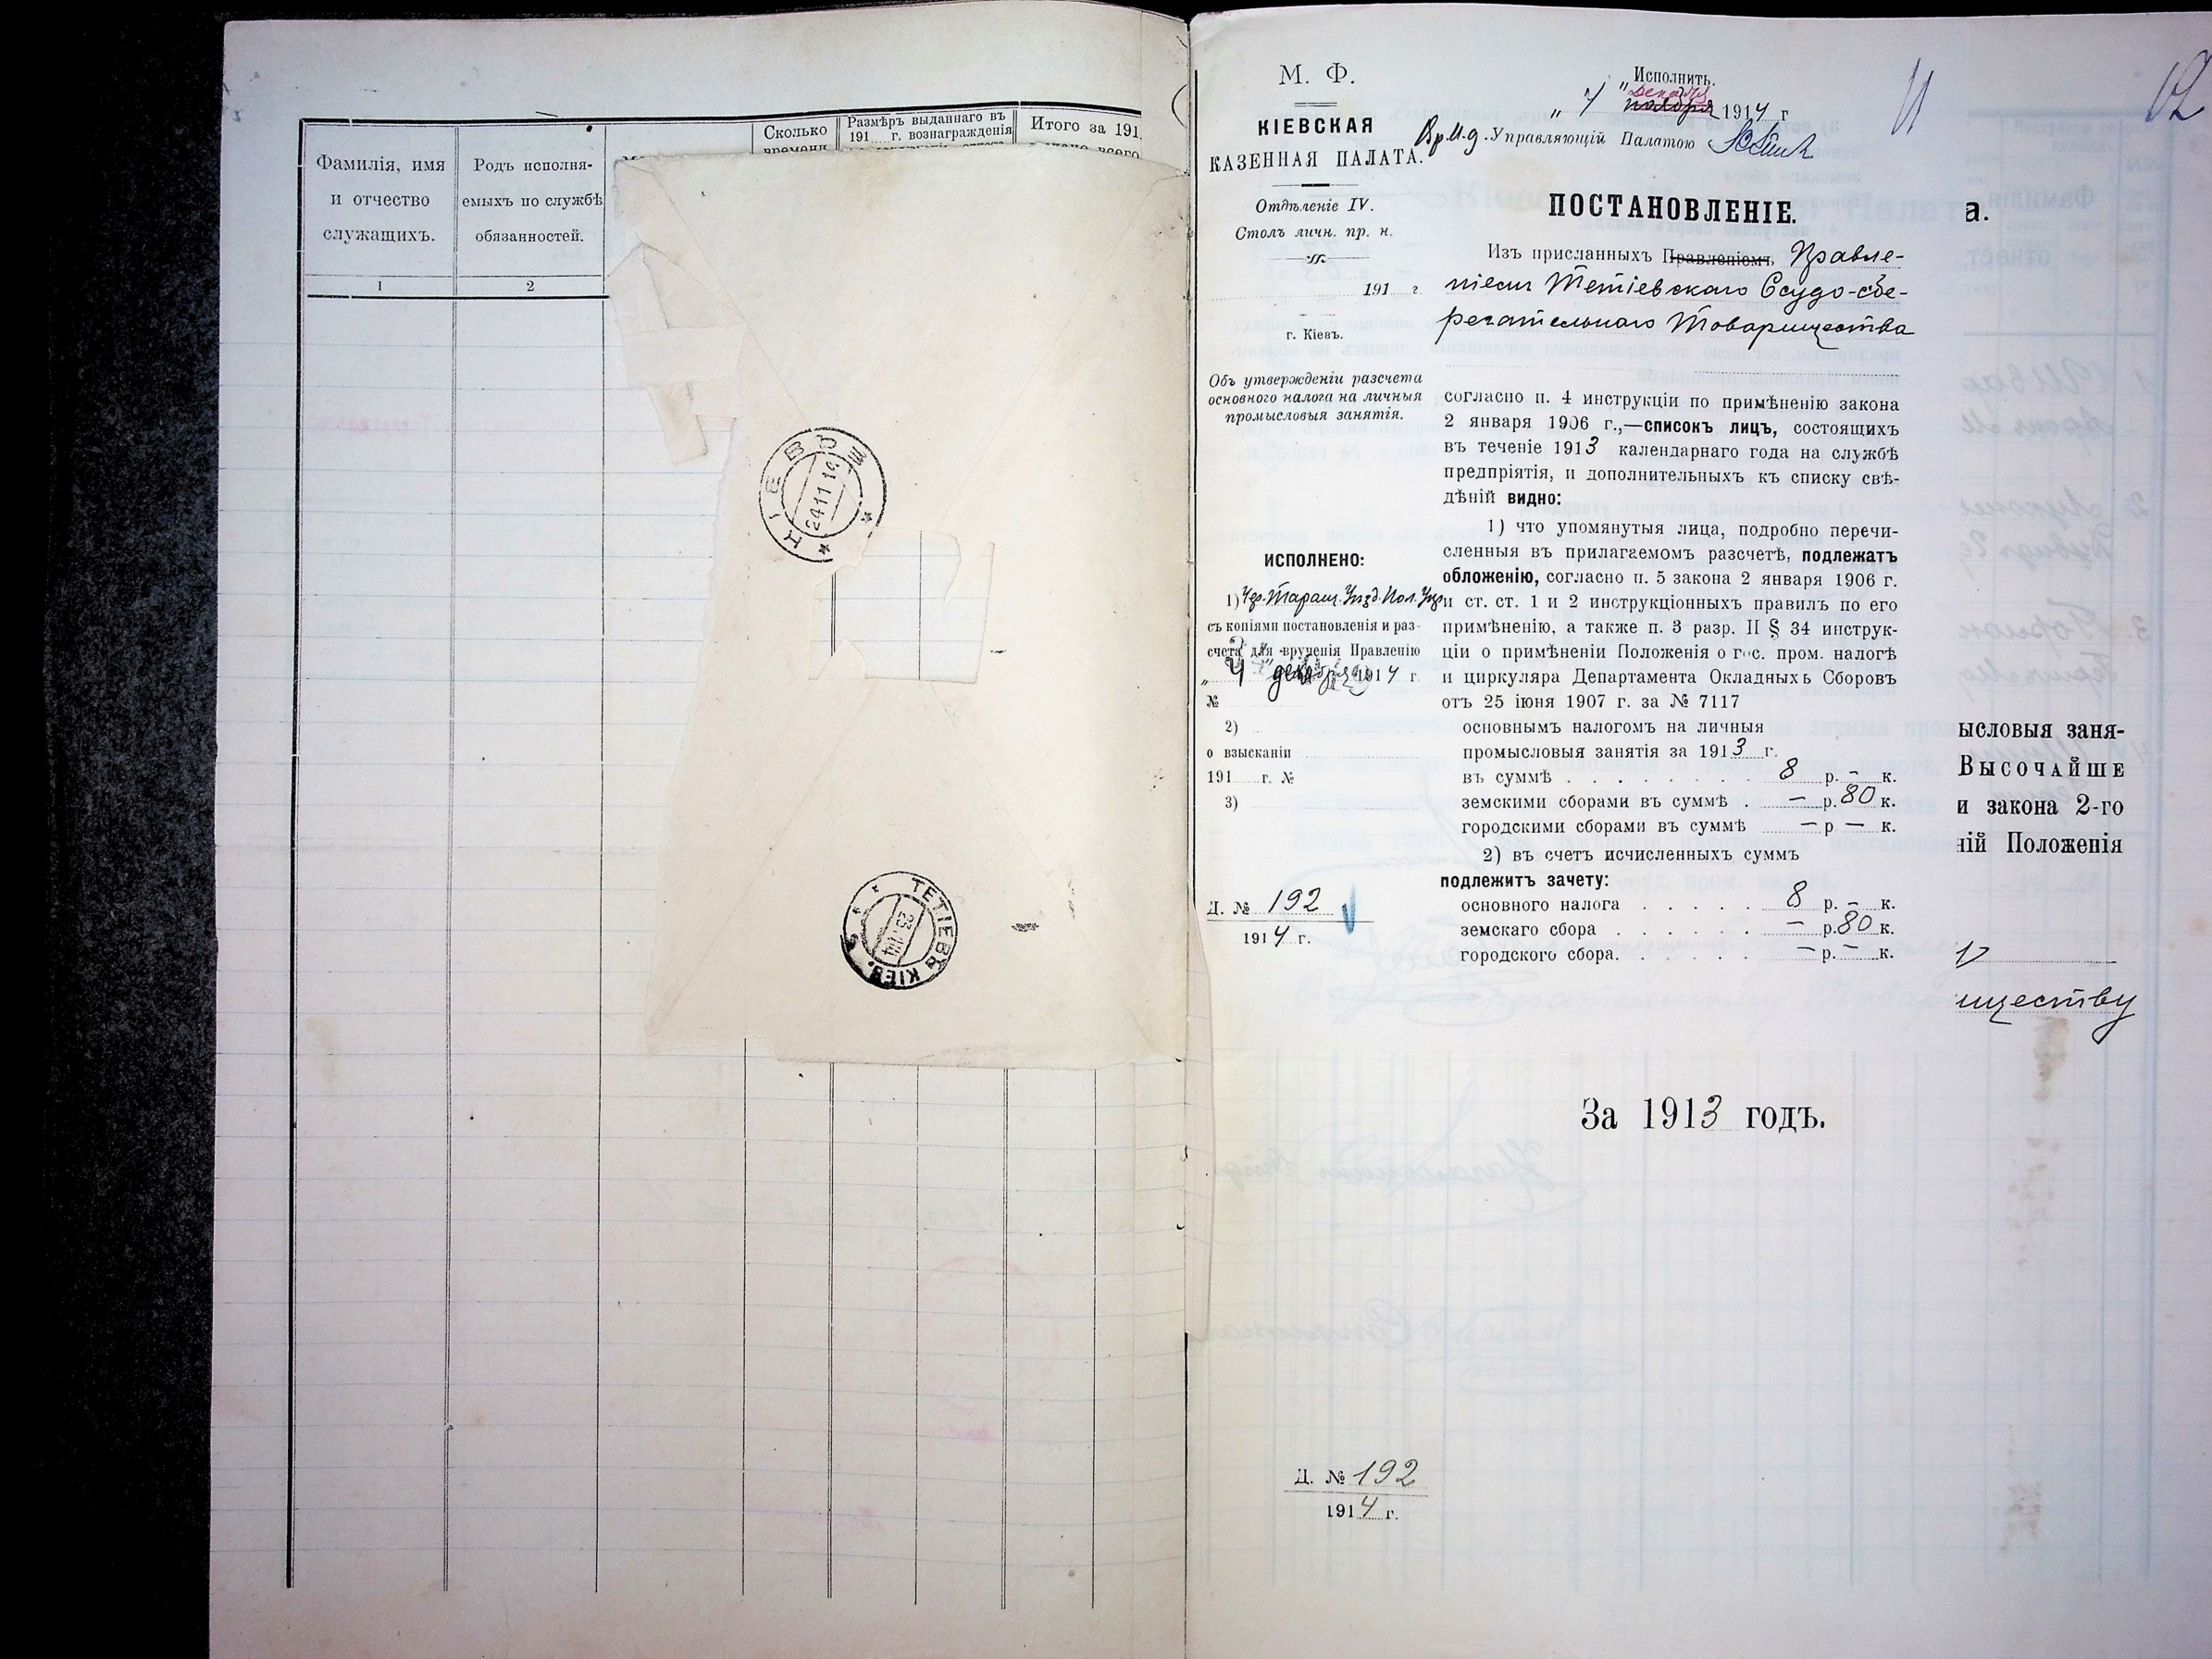 Фамилія, имя
и отчество
служащихъ.
1
Родъ исполня-
емыхъ по службѣ
обязанностей.
2
Сколько
времени
Размѣръ выданнаго въ
191 г. вознагражденія
Итого за 191
всего
КІЕВЪ
24 11 14
ТЕТІЕВЪ КІЕВ.
М. Ф.
КІЕВСКАЯ
КАЗЕННАЯ ПАЛАТА.
Отдѣленіе IV.
Столъ личн. пр. н.
191 г.
г. Кіевъ.
Объ утвержденіи разсчета
основного налога на личныя
промысловыя занятія.
ИСПОЛНЕНО:
1)
съ копіями постановленія и раз-
счета для врученія Правленію
" 4 " декабря 1914 г.
№
2)
о взысканіи
191 г. №
3)
Д. № 192
1914 г.
Исполнить.
" 4 " ноября декабря 1914 г
Вр.И.д. Управляющій Палатою
11
12
ПОСТАНОВЛЕНІЕ.
Изъ присланныхъ Правленіемъ Правле-
ніемъ Тетіевскаго Ссудо-сбе-
регательнаго Товарищества
согласно п. 4 инструкціи по примѣненію закона
2 января 1906 г.,—списокъ лицъ, состоящихъ
въ теченіе 1913 календарнаго года на службѣ
предпріятія, и дополнительныхъ къ списку свѣ-
дѣній видно:
1) что упомянутыя лица, подробно перечи-
сленныя въ прилагаемомъ разсчетѣ, подлежатъ
обложенію, согласно п. 5 закона 2 января 1906 г.
и ст. ст. 1 и 2 инструкціонныхъ правилъ по его
примѣненію, а также п. 3 разр. II § 34 инструк-
ціи о примѣненіи Положенія о гос. пром. налогѣ
и циркуляра Департамента Окладныхъ Сборовъ
отъ 25 іюня 1907 г. за № 7117
основнымъ налогомъ на личныя
промысловыя занятія за 1913 г.
въ суммѣ . . . . . . . 8 р. — к.
земскими сборами въ суммѣ . — р. 80 к.
городскими сборами въ суммѣ — р — к.
2) въ счетъ исчисленныхъ суммъ
подлежитъ зачету:
основного налога . . . . . 8 р. — к.
земскаго сбора . . . . . . — р. 80 к.
городского сбора. . . . . . — р. — к.
а.
ысловыя заня-
ВЫСОЧАЙШЕ
и закона 2-го
ній Положенія
иществу
За 1913 годъ.
Д. № 192
1914 г.